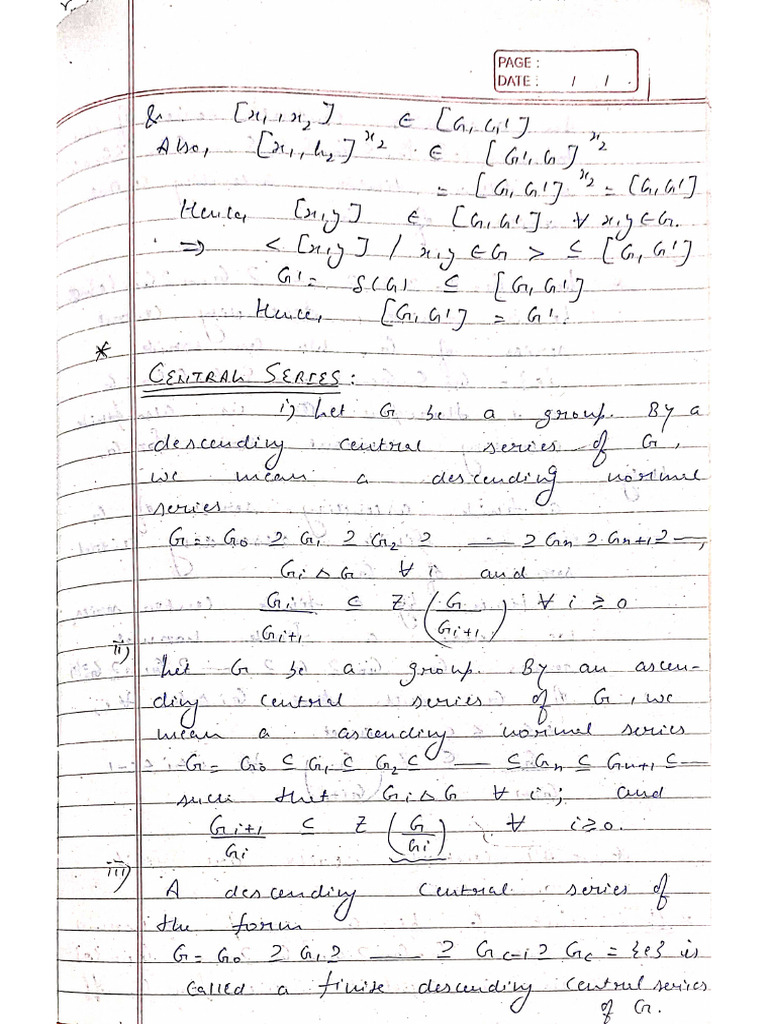 PAGE :
DATE : / / .
& [x₁, x₂] ∈ [G, G']
Also, [x₁, h₂]^x₂ ∈ [G', G]^x₂
= [G, G']^x₂ = [G, G']
Hence, [x,y] ∈ [G, G'] ∀ x,y ∈ G.
⇒ < [x,y] / x,y ∈ G > ⊆ [G, G']
G' = δ(G) ⊆ [G, G']
Hence, [G, G'] = G'.
*
CENTRAL SERIES :
i) Let G be a group. By a
descending central series of G,
we mean a descending normal
series
G = G₀ ⊇ G₁ ⊇ G₂ ⊇ —— ⊇ Gₙ ⊇ Gₙ₊₁ ⊇ —,
Gᵢ △ G ∀ i and
Gᵢ/Gᵢ₊₁ ⊆ Z (G/Gᵢ₊₁) ∀ i ≥ 0
ii) Let G be a group. By an ascen-
ding central series of G, we
mean a ascending normal series
G = G₀ ⊆ G₁ ⊆ G₂ ⊆ —— ⊆ Gₙ ⊆ Gₙ₊₁ ⊆ —
such that Gᵢ △ G ∀ i; and
Gᵢ₊₁/Gᵢ ⊆ Z (G/Gᵢ) ∀ i ≥ 0.
iii) A descending central series of
the form
G = G₀ ⊇ G₁ ⊇ —— ⊇ G_c-1 ⊇ G_c = {e} is
called a finite descending central series
of G.